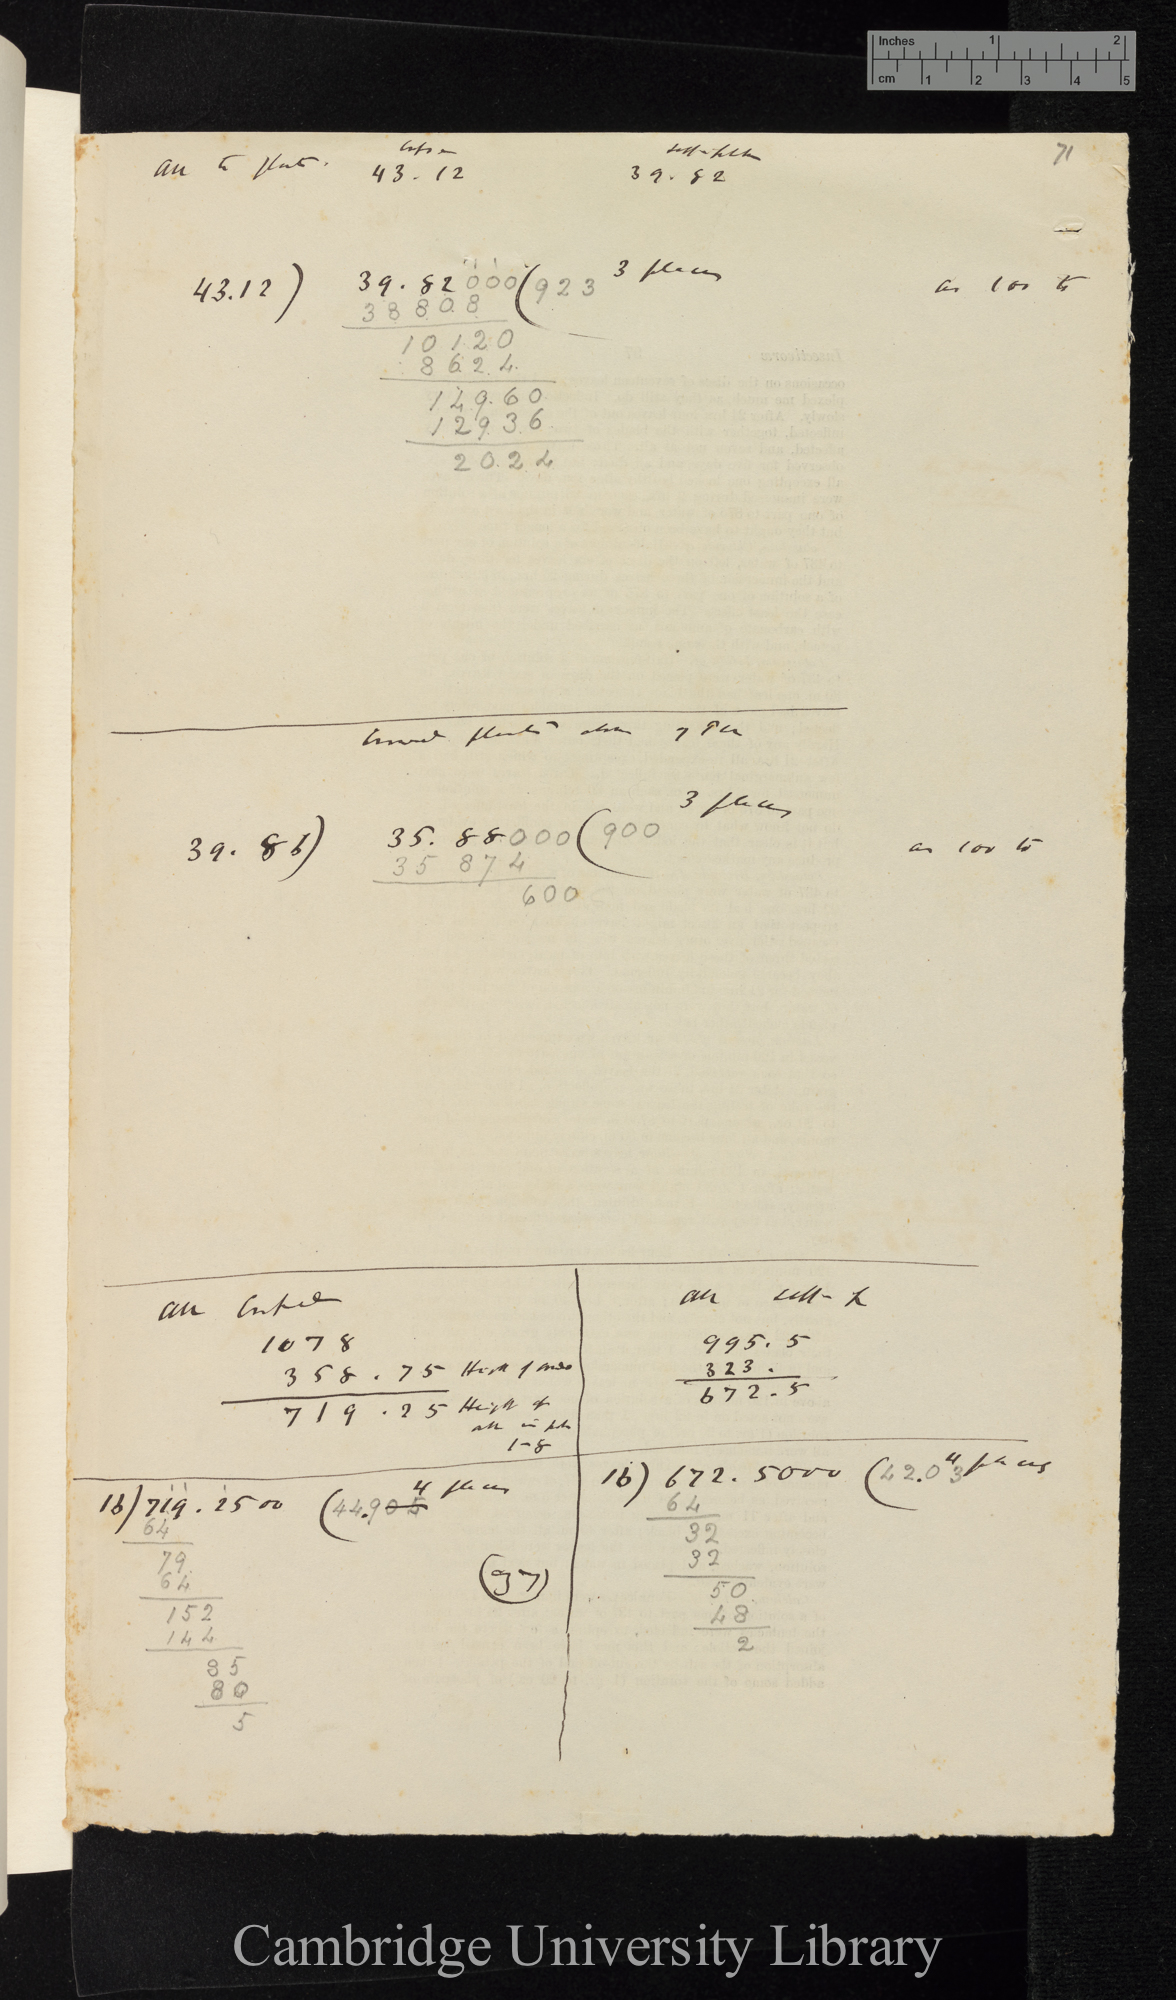 Inches 1 2
cm 1 2 3 4 5
71
Crossed self-fert
all the plants. 43.12 39.82
43.12) 39.82000(923 3 places as 100 to
38808
10120
8624
14960
12936
2024
Crowded plants alone
39.86) 35.88000(900 3 places as 100 to
35 874
600
All Crossed
1078
358.75 Height of
719.25 Height of
all in pots
1-8
16)719.2500 (44.905 4 places
64
79
64
152
144
85
80
5
(97)
all self-f
995.5
323.
672.5
16) 672.5000 (42.03 4 places
64
32
32
50
48
2
Cambridge University Library